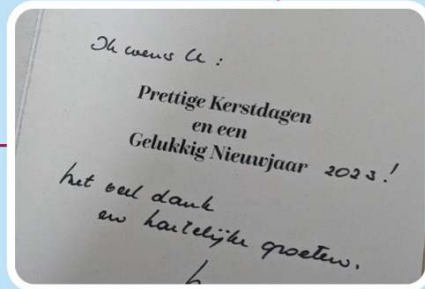 Ik wens U :
Prettige Kerstdagen
en een
Gelukkig Nieuwjaar 2023!
het veel dank
en hartelijke groeten.